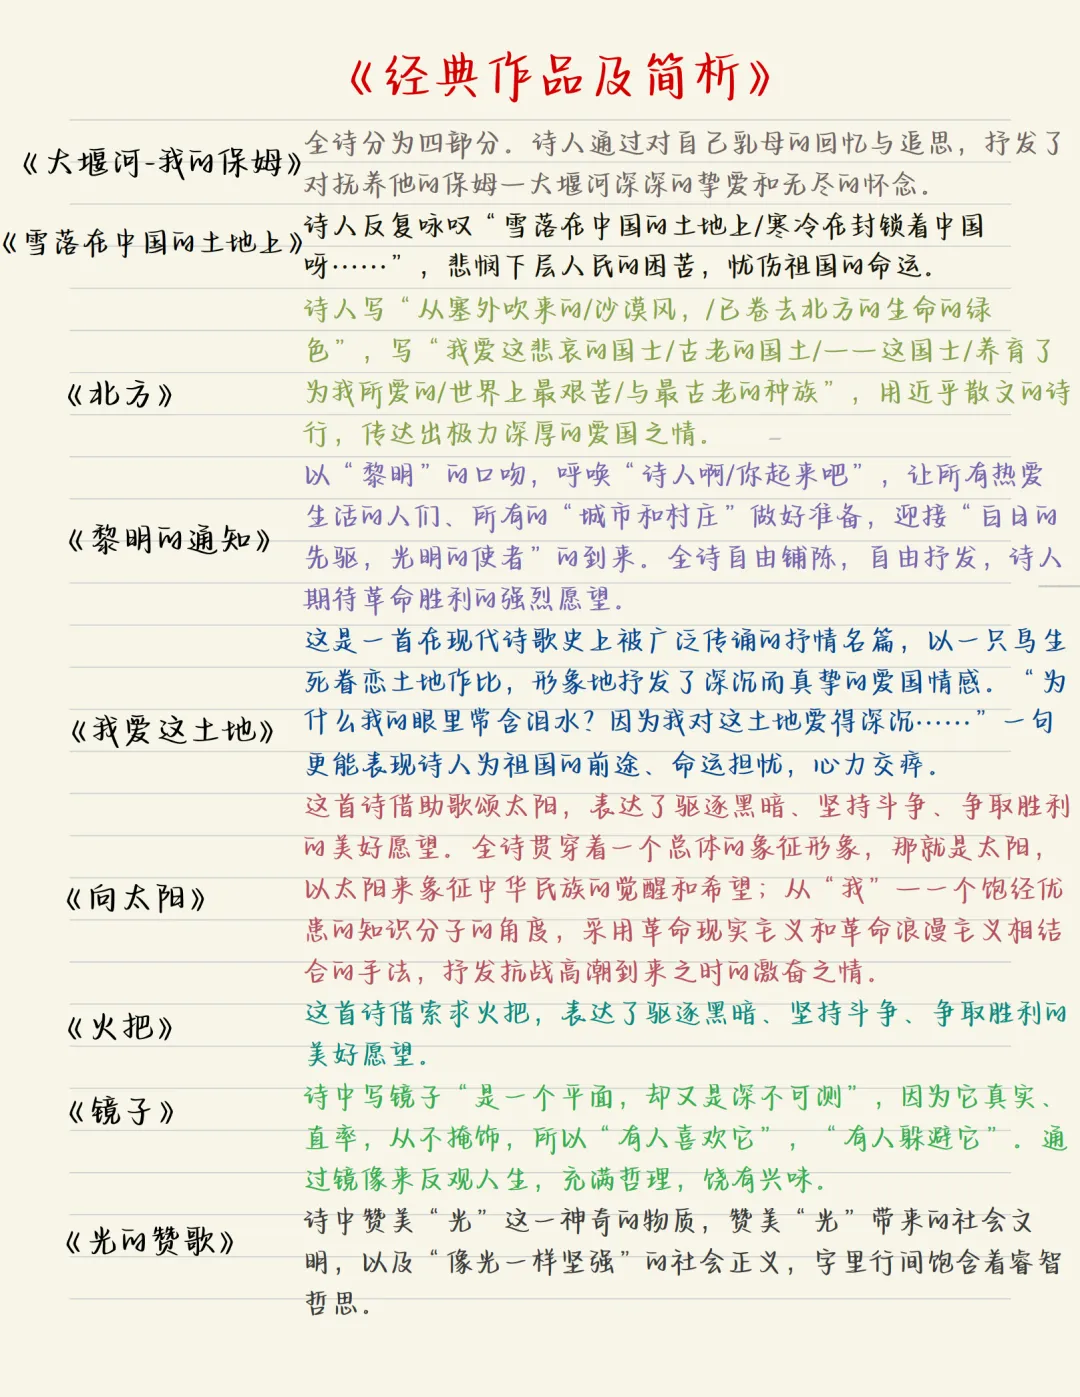 《经典作品及简析》
《大堰河-我的保姆》
全诗分为四部分。诗人通过对自己乳母的回忆与追思，抒发了
对抚养他的保姆—大堰河深深的挚爱和无尽的怀念。
《雪落在中国的土地上》
诗人反复咏叹“雪落在中国的土地上/寒冷在封锁着中国
呀……”，悲悯下层人民的困苦，忧伤祖国的命运。
《北方》
诗人写“从塞外吹来的/沙漠风，/已卷去北方的生命的绿
色”，写“我爱这悲哀的国土/古老的国土/——这国土/养育了
为我所爱的/世界上最艰苦/与最古老的种族”，用近乎散文的诗
行，传达出极力深厚的爱国之情。
《黎明的通知》
以“黎明”的口吻，呼唤“诗人啊/你起来吧”，让所有热爱
生活的人们、所有的“城市和村庄”做好准备，迎接“白日的
先驱，光明的使者”的到来。全诗自由铺陈，自由抒发，诗人
期待革命胜利的强烈愿望。
《我爱这土地》
这是一首在现代诗歌史上被广泛传诵的抒情名篇，以一只鸟生
死眷恋土地作比，形象地抒发了深沉而真挚的爱国情感。“为
什么我的眼里常含泪水？因为我对这土地爱得深沉……”一句
更能表现诗人为祖国的前途、命运担忧，心力交瘁。
《向太阳》
这首诗借助歌颂太阳，表达了驱逐黑暗、坚持斗争、争取胜利
的美好愿望。全诗贯穿着一个总体的象征形象，那就是太阳，
以太阳来象征中华民族的觉醒和希望；从“我”——个饱经忧
患的知识分子的角度，采用革命现实主义和革命浪漫主义相结
合的手法，抒发抗战高潮到来之时的激奋之情。
《火把》
这首诗借索求火把，表达了驱逐黑暗、坚持斗争、争取胜利的
美好愿望。
《镜子》
诗中写镜子“是一个平面，却又是深不可测”，因为它真实、
直率，从不掩饰，所以“有人喜欢它”，“有人躲避它”。通
过镜像来反观人生，充满哲理，饶有兴味。
《光的赞歌》
诗中赞美“光”这一神奇的物质，赞美“光”带来的社会文
明，以及“像光一样坚强”的社会正义，字里行间饱含着睿智
哲思。